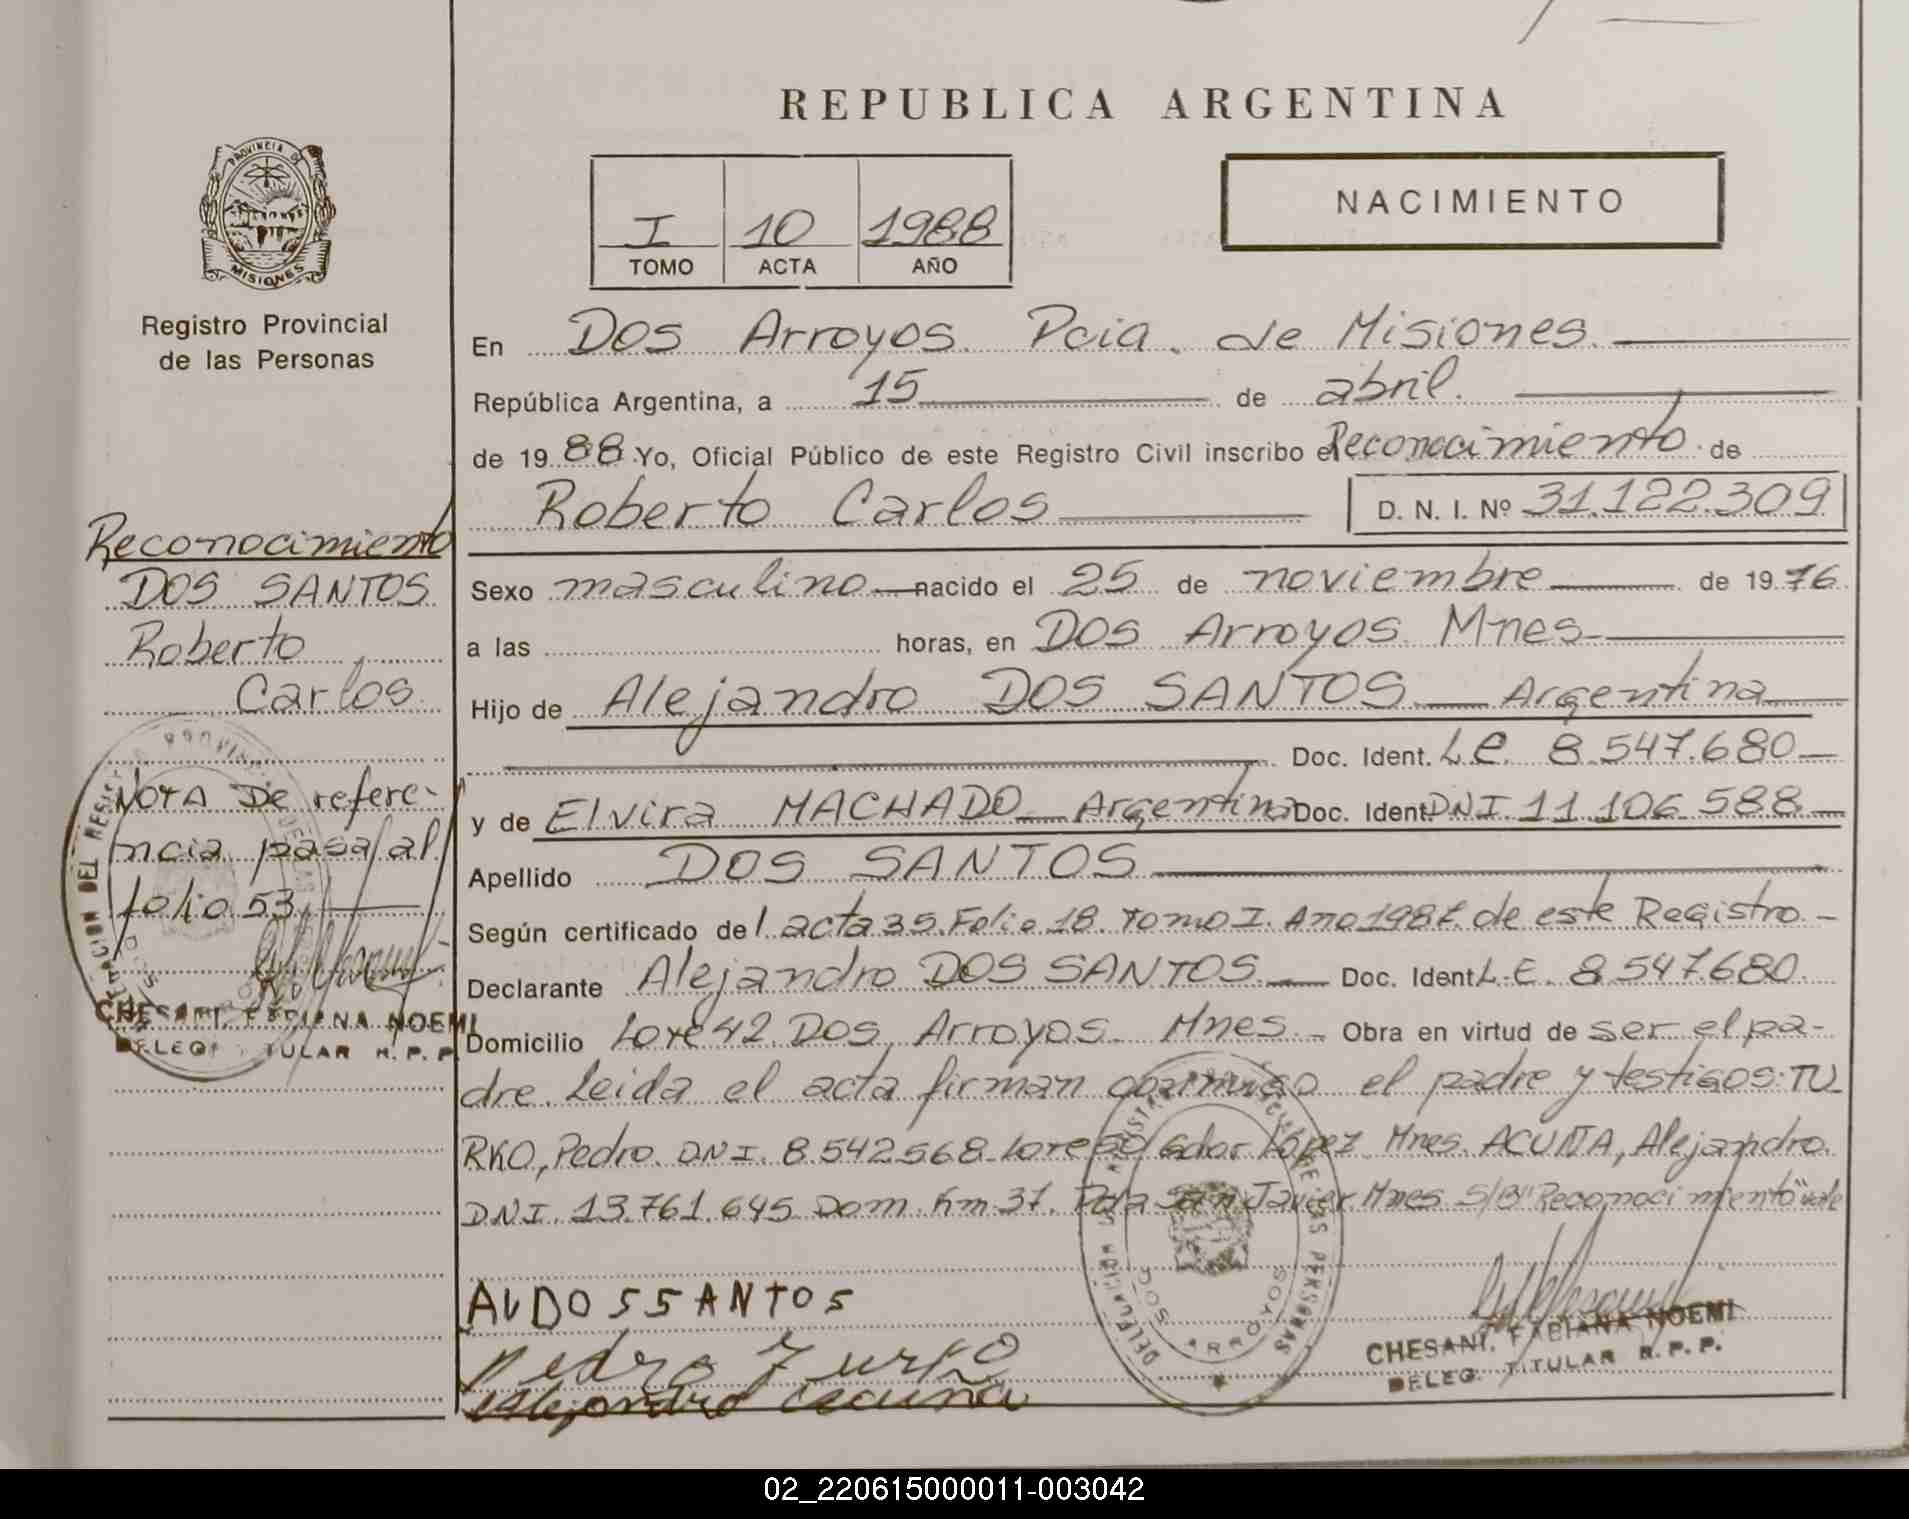 REPUBLICA ARGENTINA
PROVINCIA DE
MISIONES
Registro Provincial
de las Personas
I 10 1988
TOMO ACTA AÑO
NACIMIENTO
En Dos Arroyos. Pcia. de Misiones.
República Argentina, a 15 de abril.
de 1988 Yo, Oficial Público de este Registro Civil inscribo el Reconocimiento de
Roberto Carlos D. N. I. Nº 31.122.309
Sexo masculino nacido el 25 de noviembre de 1976
a las horas, en Dos Arroyos. Mnes
Hijo de Alejandro DOS SANTOS Argentina
Doc. Ident. L.E. 8.547.680
y de Elvira MACHADO Argentina Doc. Ident DNI 11.106.588
Apellido DOS SANTOS
Según certificado del acta 35. Folio 18. Tomo I. Año 1987. de este Registro.
Declarante Alejandro DOS SANTOS. Doc. Ident L.E. 8.547.680.
Domicilio Lote 42. Dos Arroyos. Mnes. Obra en virtud de ser el pa-
dre. Leida el acta firman conmigo el padre y testigos: TU
RKO, Pedro. DNI. 8.542.568. Lote López Mnes. ACUÑA, Alejandro.
DNI. 13.761.645 Dom. Km. 37. San Javier. Mnes. S/B "Reconocimiento" vale
AUDOSSANTOS
Pedro Turko
Alejandro Acuña
CHESANI, FABIANA NOEMI
DELEG. TITULAR R. P. P.
DOS ARROYOS
Reconocimiento
DOS SANTOS
Roberto
Carlos.
NOTA De refere-
ncia pasa al
folio 53.
CHESANI, FABIANA NOEMI
DELEG. TITULAR R. P. P.
02_220615000011-003042